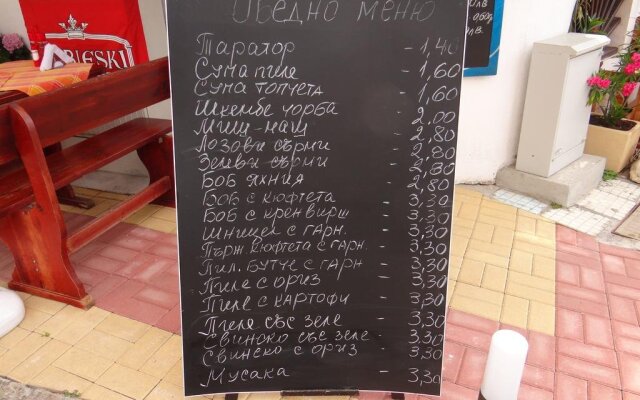 Обедно меню
Таратор - 1,40
Супа пиле - 1,60
Супа топчета - 1,60
Шкембе чорба - 2,00
Миш-маш - 2,80
Лозови сърми - 2,80
Зелеви сърми - 2,80
Боб яхния - 2,80
Боб с кюфтета - 3,30
Боб с кренвирш - 3,30
Шницел с гарн. - 3,30
Пърж. кюфтета с гарн. - 3,30
Пил. бутче с гарн - 3,30
Пиле с ориз - 3,30
Пиле с картофи - 3,30
Пиле със зеле - 3,30
Свинско със зеле - 3,30
Свинско с ориз - 3,30
Мусака - 3,30